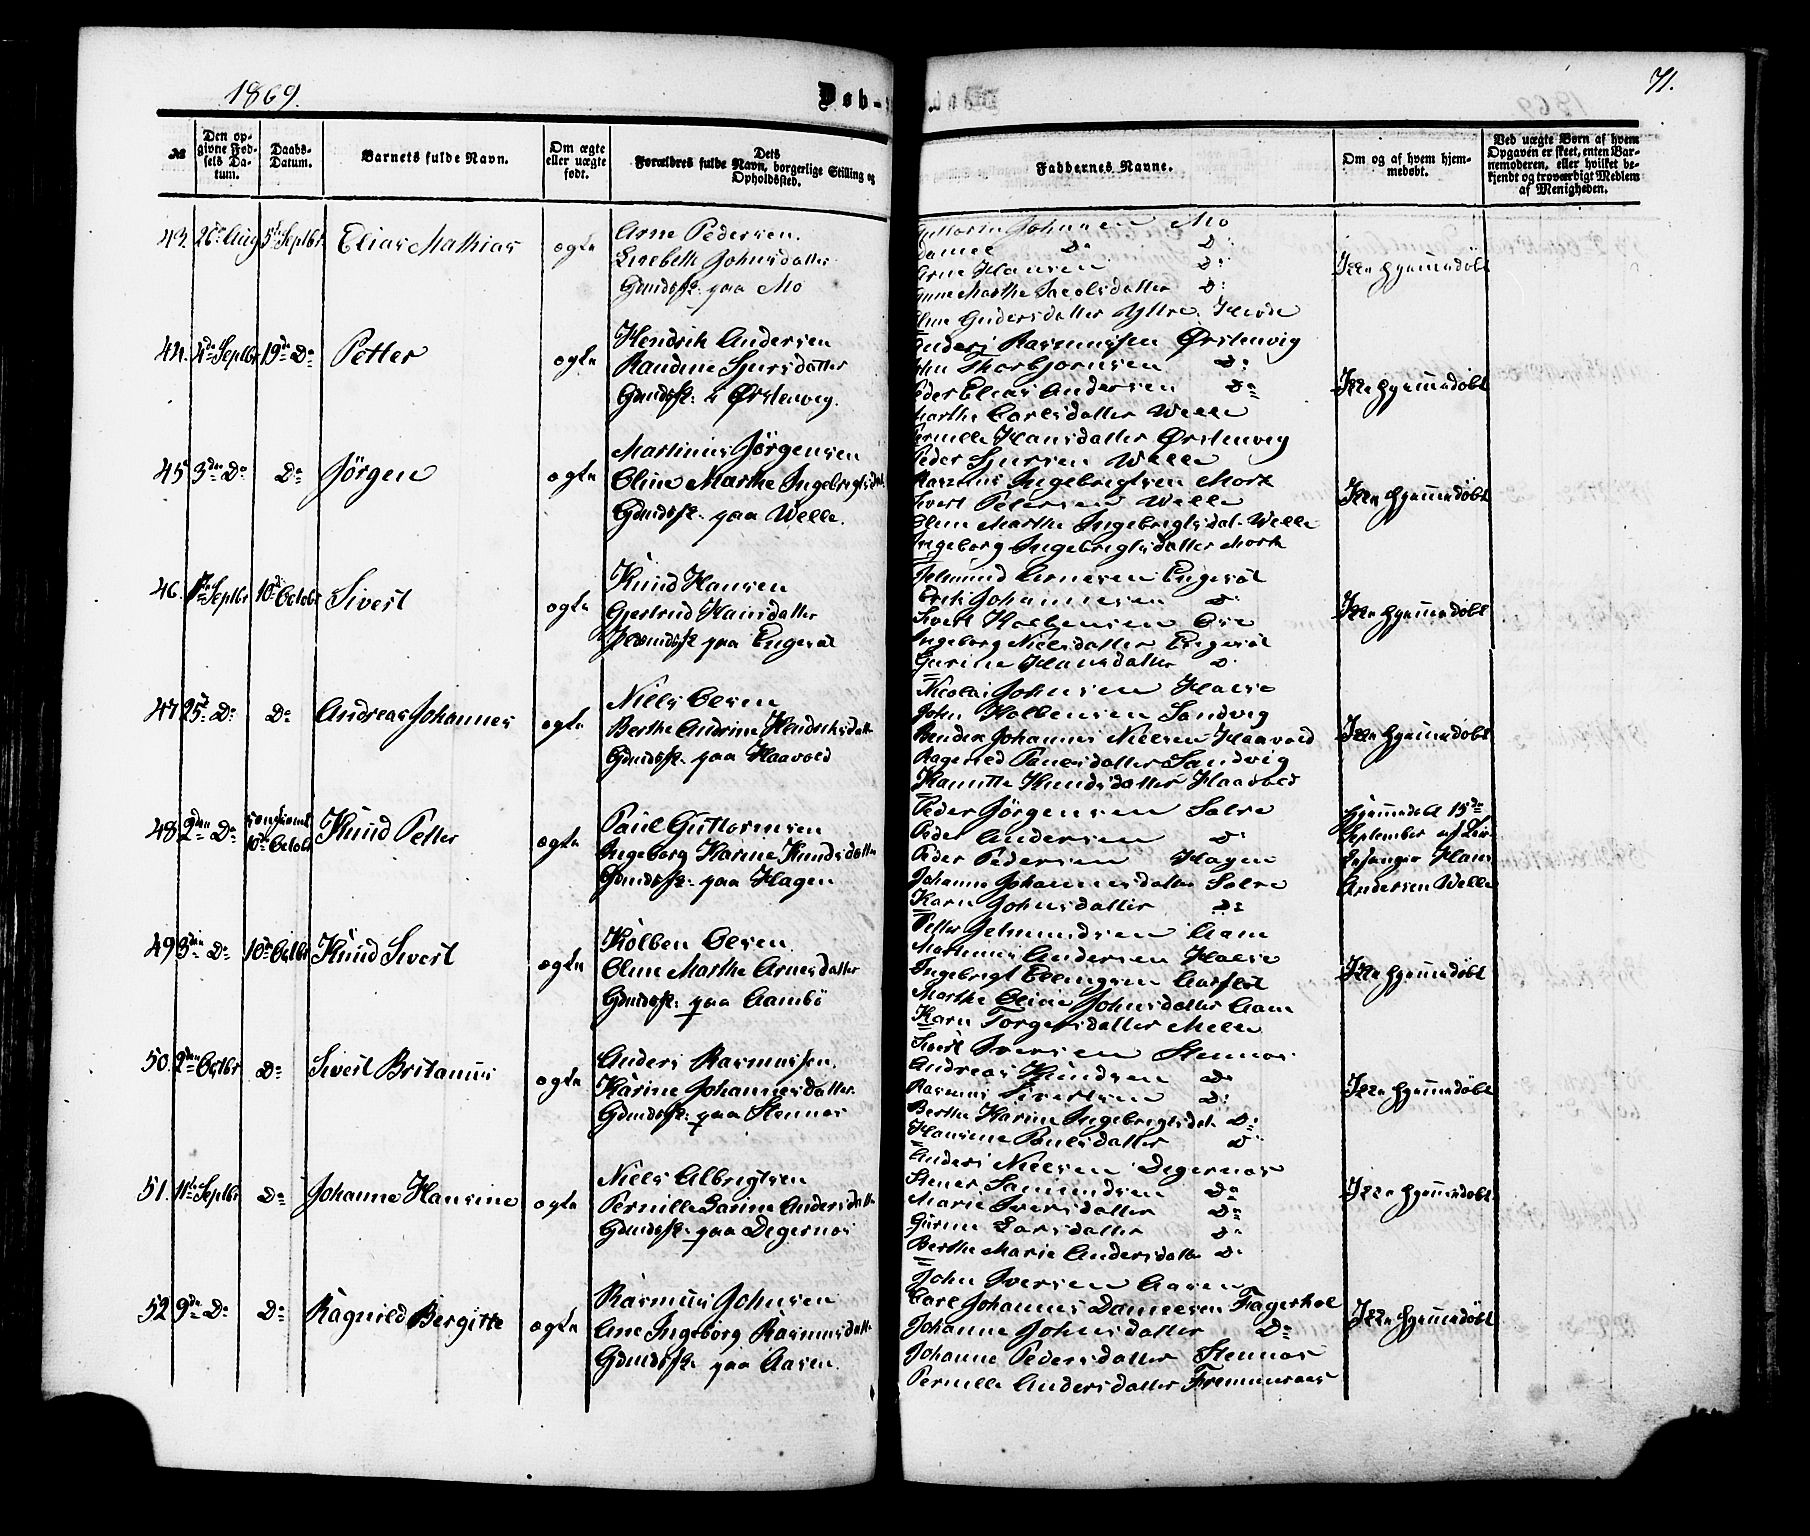 1869.
Døb-
71.
№
Den opgivne Fødsels Datum.
Daabs-Datum.
Barnets fulde Navn.
Om ægte eller uægte født.
Dets Forældres fulde Navn, borgerlige Stilling og Opholdssted.
Faddernes Navne.
Om og af hvem hjemmedøbt.
Ved uægte Børn af hvem Opgaven er skeet, enten Barnemoderen, eller hvilket bekjendt og troværdigt Medlem af Menigheden.
43. 26de Aug 5te Septbr Elias Mathias ægte
Arne Pedersen.
Lisebeth Johnsdatter
Gmdsfk. paa Mo
Guttorm Johnsen Mo
Daniel Do Do
Arne Hansen Do
Anne Marthe Jacobsdatter Do
Oline Andersdatter Yttre Hovde
Ikke hjemmedøbt
44. 4de Septbr 19de Do Petter ægte
Hendrik Andersen
Randine Sjursdatter
Gmdsfk. i Ørstenvig.
Anders Rasmussen Ørstenvig
John Thorbjørnsen Do
Peder Elias Andersen Do
Marthe Carlsdatter Welle
Pernille Hansdatter Ørstenvig
Ikke hjemmedøbt
45. 3die Do Do Jørgen ægte
Martinus Jørgensen
Oline Marthe Ingebrigtsdat.
Gmdsfk. paa Welle.
Peder Sjursen Welle
Rasmus Ingebrigtsen Mork
Sivert Petersen Welle
Oline Marthe Ingebrigtsdat. Welle
Ingeborg Ingebrigtsdatter Mork
Ikke hjemmedøbt
46. Septbr 10de Octobr Sivert ægte
Knud Hansen
Gjertrud Hansdatter
paa Engeset
Jetmund Arnesen Engeset
Erik Johannesen Do
Sivert Kolbensen Ose
Ingeborg Nielsdatter Engeset
Gurine Hansdatter Do
Ikke hjemmedøbt
47. 25de Do Do Andreas Johannes ægte
Niels Olsen
Berthe Andrine Hendriksdatt
Gmdsfk. paa Haavold
Nicolai Johnsen Halse
John Kolbensen Sandvig
Johannes Nielsen Haavold
Ragnild Paulsdatter Sandvig
Knudsdatter Haavold
Ikke hjemmedøbt
48. 2den Do 10de Octobr Knud Petter ægte
Paul Guttormsen
Ingeborg Karine Knudsdatter
Gmdsfk. paa Hagen
Peder Jørgensen Sætre
Peder Andersen Do
Peder Pedersen Hagen
Johanne Johannesdatter Sætre
Karn Johnsdatter Do
Hjemmedøbt 15de
September af Kir-
kesanger Hans
Andersen Welle
49. 3die Do 10de Octbr Knud Sivert ægte
Kolben Olsen
Oline Marthe Arnesdatter
Gmdsfk. paa Aambø
Petter Jetmundsen Aam
Martinus Andersen Halse
Ingebrigt Ellingsen Aarflot
Marthe Oline Johnsdatter Aam
Karn Torgersdatter Melle
Ikke hjemmedøbt
50. 2den Octbr Do Sivert Britanus ægte
Anders Rasmussen.
Karine Johannesdatter
Gmdsfk. paa Steinnes
Sivert Iversen Steinnes
Andreas Knudsen Do
Rasmus Sivertsen Do
Berthe Karine Ingebrigtsdat. Do
Hansine Paulsdatter Do
Ikke hjemmedøbt
51. 11te Septbr Do Johanne Hansine ægte
Niels Albrigtsen
Pernille Andersdatter
Gmdsfk. paa Digernes
Anders Nielsen Digernes
Stener Samundsen Do
Marie Iversdatter Do
Gurine Larsdatter Do
Berthe Marie Andersdatter Do
Ikke hjemmedøbt
52. 9de Do Do Ragnild Bergitte ægte
Rasmus Johnsen
Ane Ingeborg Rasmusdatter
Gmdsfk. paa Aasen.
John Iversen Aasen
Carl Johannes Danielsen Fagerhol
Johanne Johnsdatter Do
Johanne Pedersdatter Steinnes
Pernille Andersdatter
Ikke hjemmedøbt